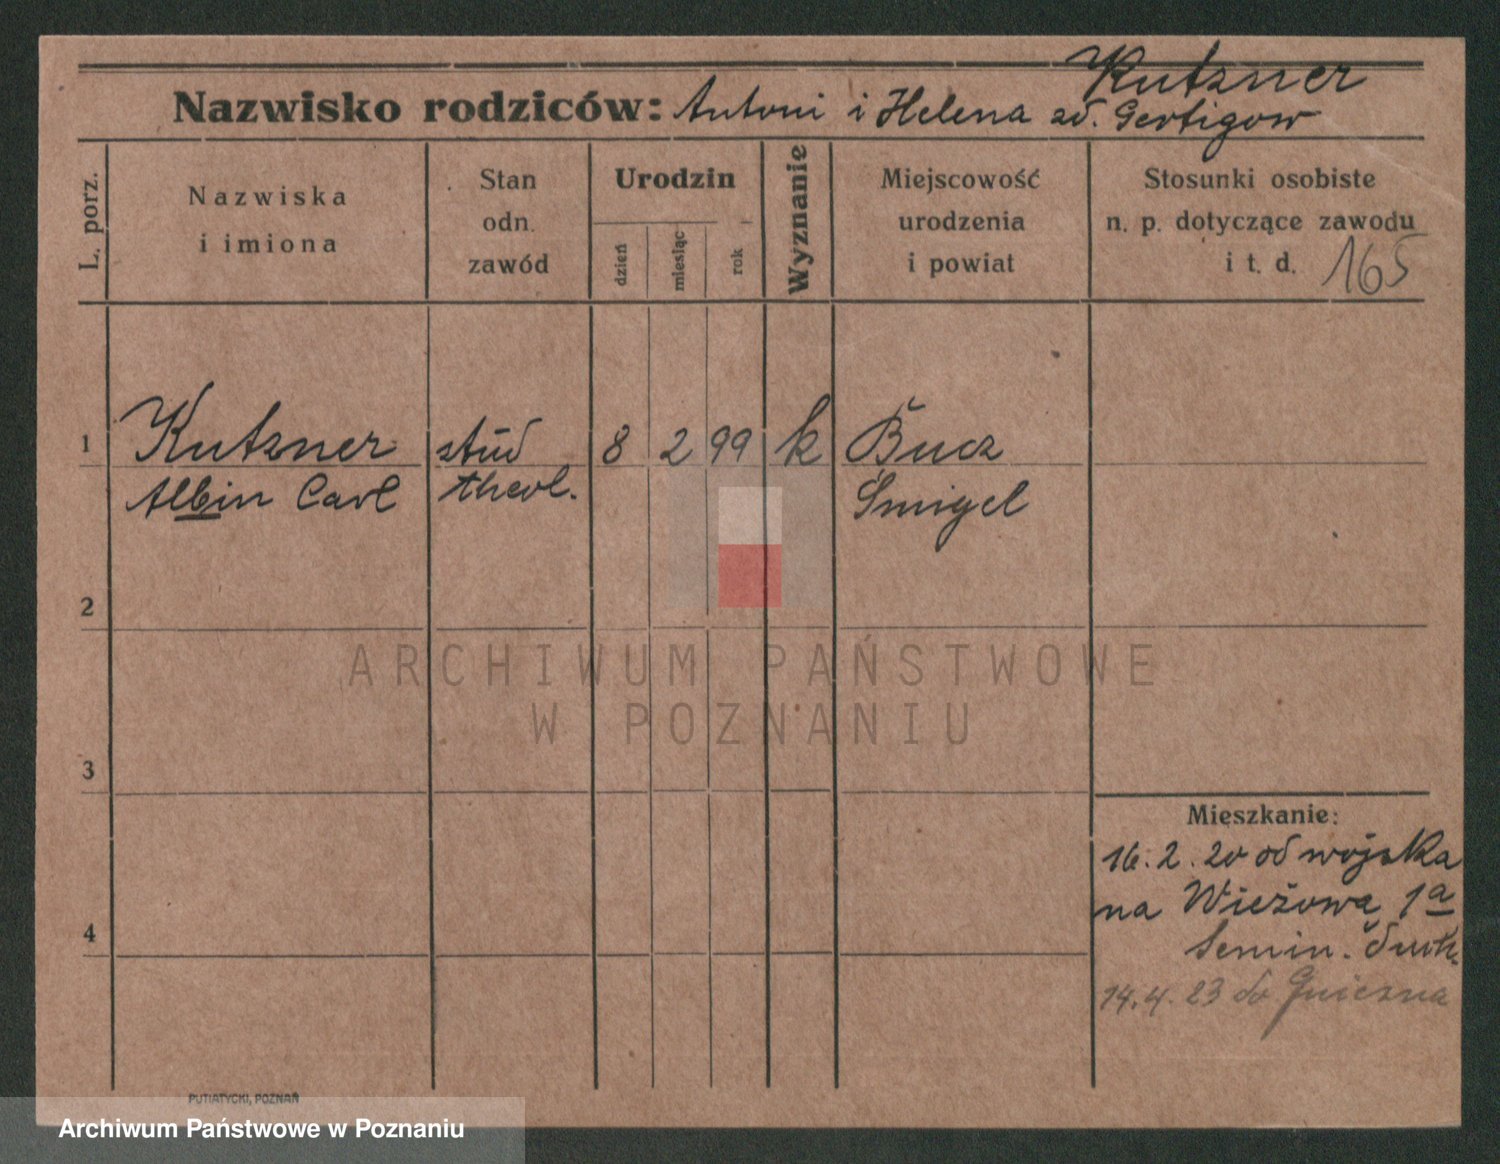 Kutzner
Nazwisko rodziców: Antoni i Helena zd. Gertigow
L. porz.
Nazwiska
i imiona
Stan
odn.
zawód
Urodzin
dzień
miesiąc
rok
Wyznanie
Miejscowość
urodzenia
i powiat
Stosunki osobiste
n. p. dotyczące zawodu
i t. d.
165
1 Kutzner stud 8 2 99 k Bucz
Albin Carl theol. Śmigel
2
ARCHIWUM PAŃSTWOWE
W POZNANIU
3
Mieszkanie:
16. 2. 20 od wojska
na Wieżową 1a
4
Semin. duch.
14. 4. 23 do Gniezna
PUTIATYCKI, POZNAŃ
Archiwum Państwowe w Poznaniu